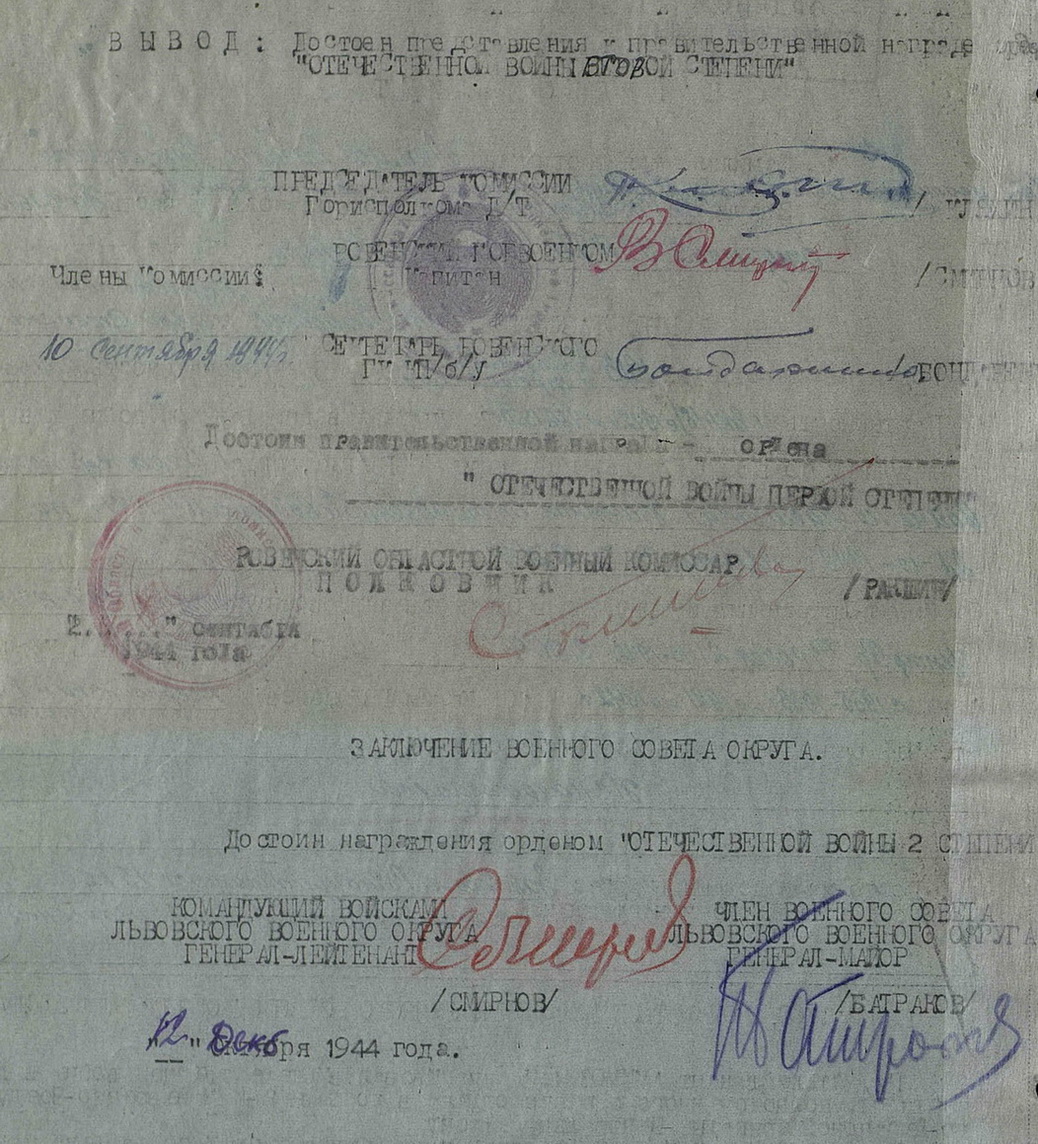 ВЫВОД: Достоен представления к правительственной награде
"ОТЕЧЕСТВЕННОЙ ВОЙНЫ ВТОРОЙ СТЕПЕНИ"
ПРЕДСЕДАТЕЛЬ КОМИССИИ
Горисполкома Д/Т
РОВЕНСКИЙ ГОРВОЕНКОМ
Члены Комиссии: Капитан /СМИРНОВ
10 Сентября 1944г. СЕКРЕТАРЬ РОВЕНСКОГО
ГК КП/б/У
Достоин правительственной награды - ордена
" ОТЕЧЕСТВЕННОЙ ВОЙНЫ ПЕРВОЙ СТЕПЕНИ"
РОВЕНСКИЙ ОБЛАСТНОЙ ВОЕННЫЙ КОМИССАР
ПОЛКОВНИК
" сентября
1944 года
ЗАКЛЮЧЕНИЕ ВОЕННОГО СОВЕТА ОКРУГА.
Достоин награждения орденом "ОТЕЧЕСТВЕННОЙ ВОЙНЫ 2 СТЕПЕНИ
КОМАНДУЮЩИЙ ВОЙСКАМИ ЧЛЕН ВОЕННОГО СОВЕТА
ЛЬВОВСКОГО ВОЕННОГО ОКРУГА ЛЬВОВСКОГО ВОЕННОГО ОКРУГА
ГЕНЕРАЛ-ЛЕЙТЕНАНТ ГЕНЕРАЛ-МАЙОР
/СМИРНОВ/ /БАТРАКОВ/
"12" Декабря 1944 года.